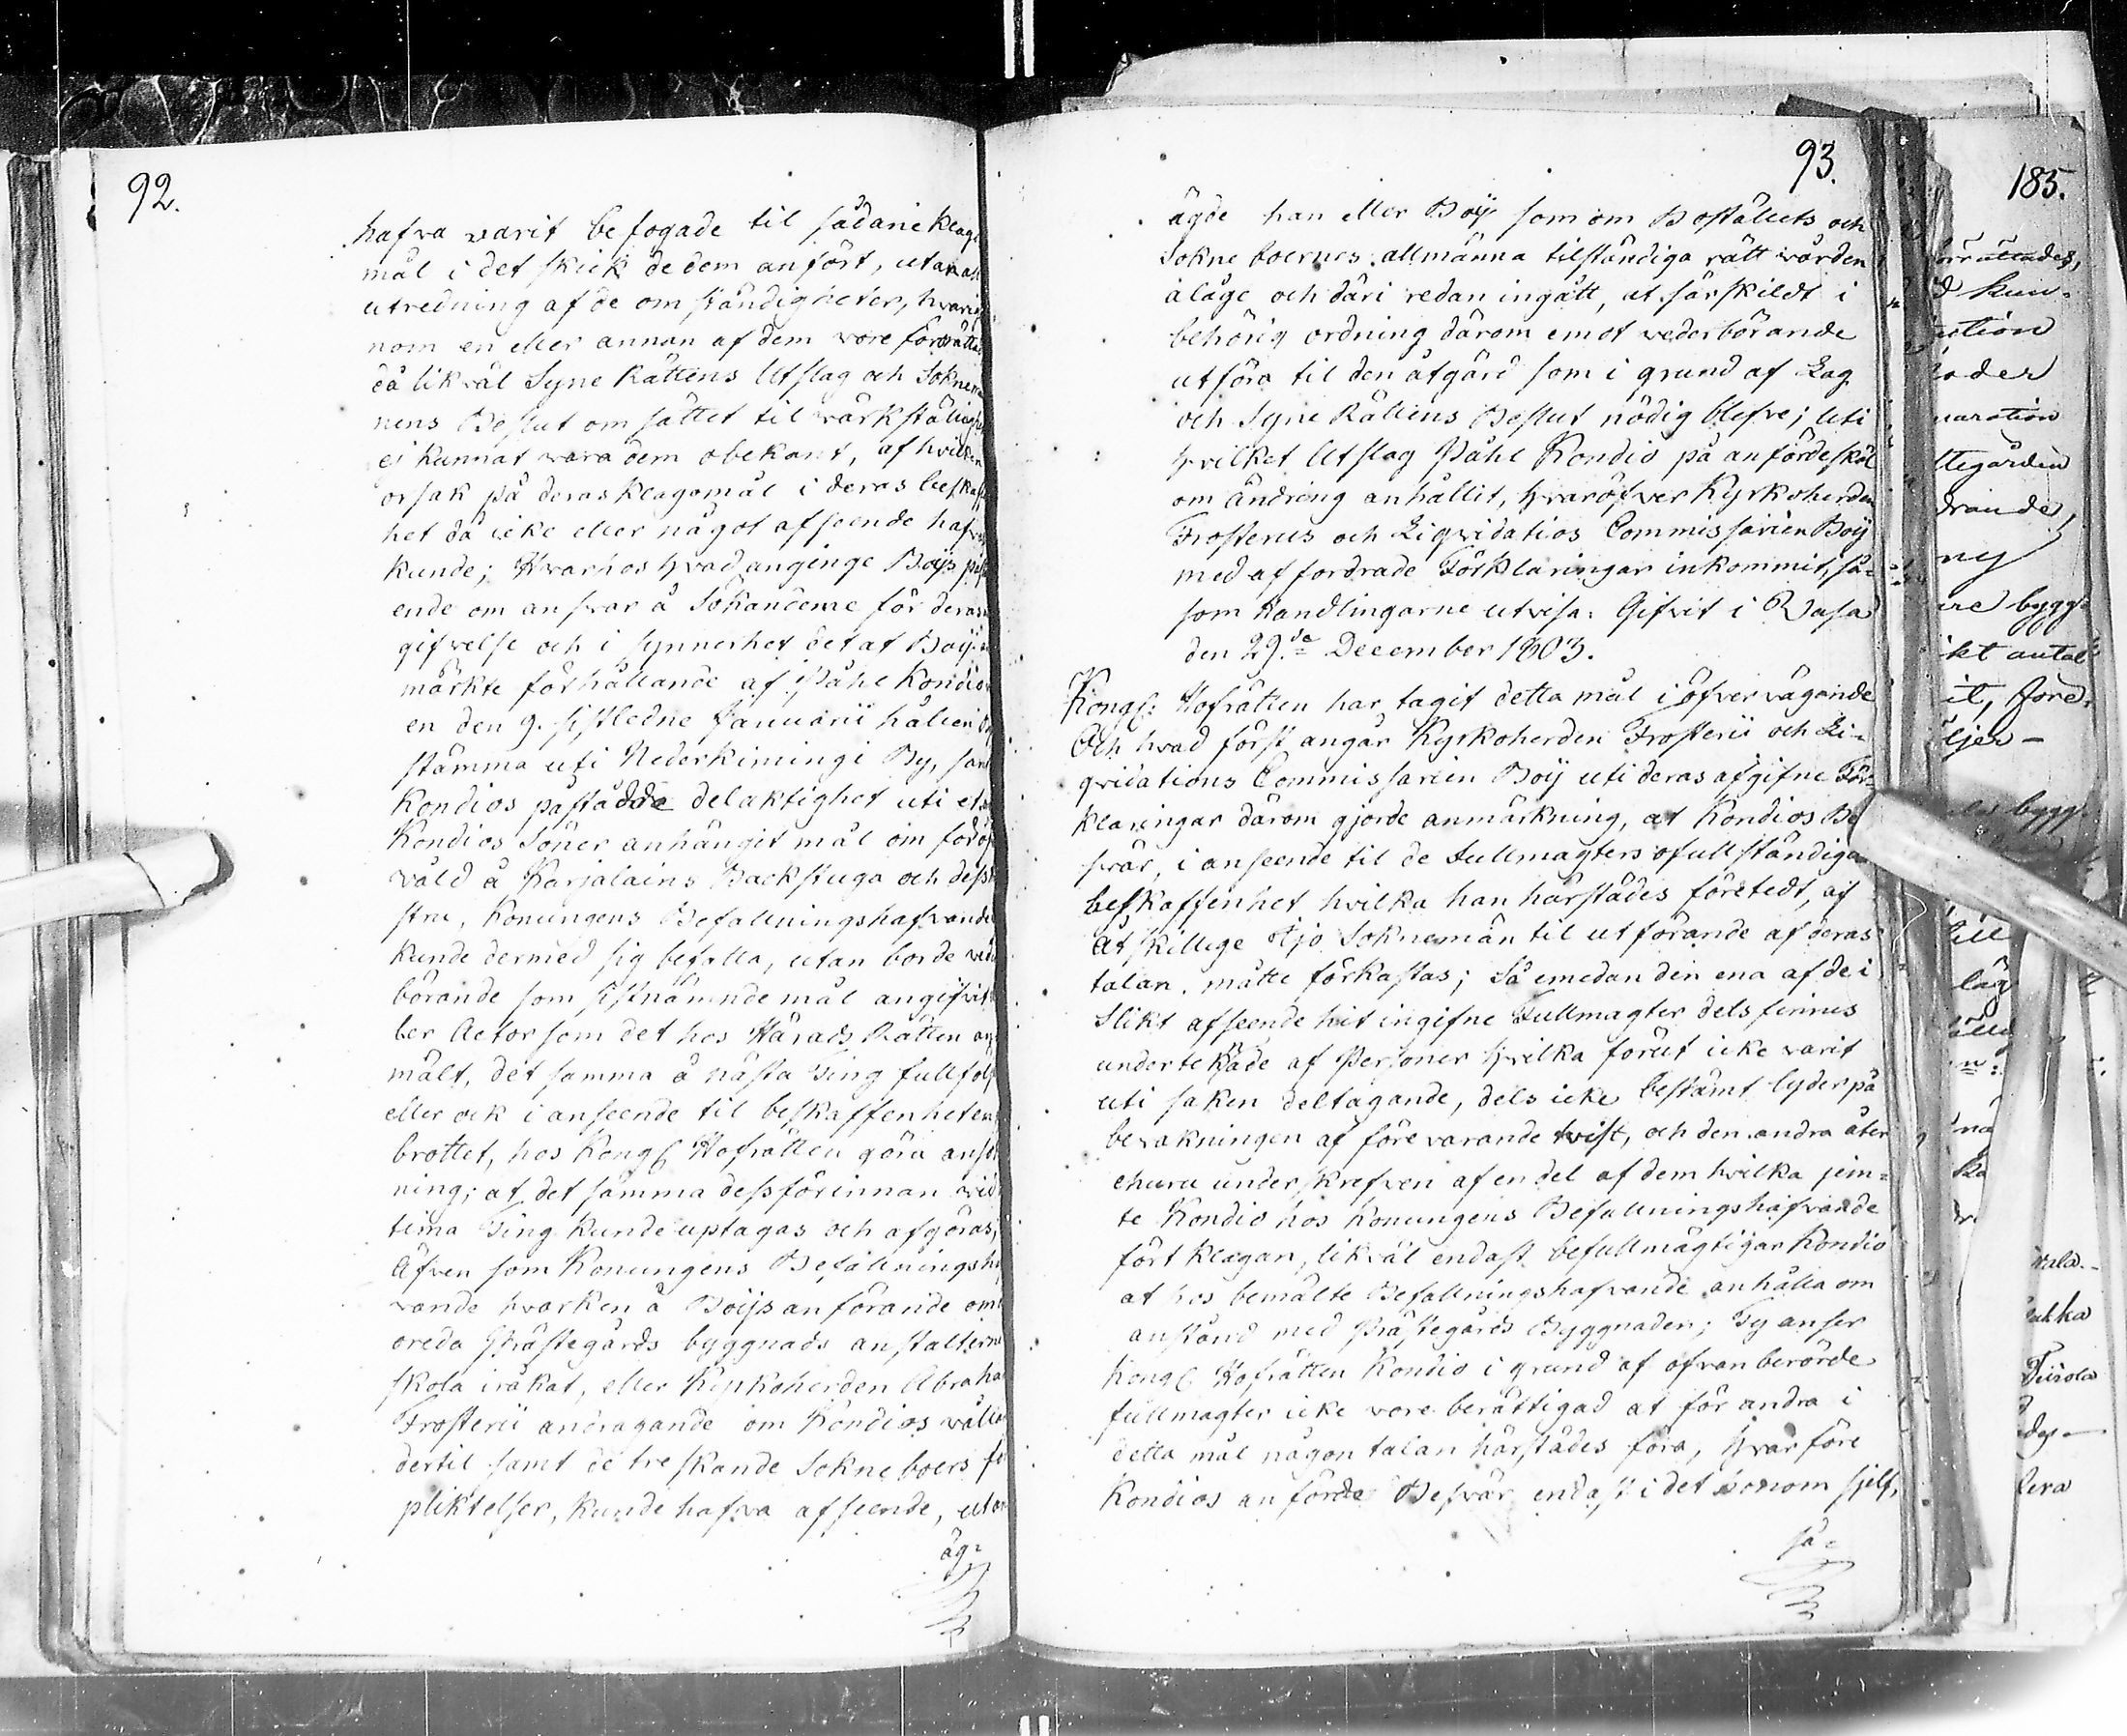 92.
hafva varit befogade til sådane klago
mål i det skick de dem anfört, utan all
utredning af de omständigheter, hvari
nom en eller annan af dem vore förorättad
då likväl Syne Rättens Utslag och Sokne
nens Beslut om sättet til värkställighet
ej kunnat vara dem obekant, af hvilken
orsak på deras klagomål i deras beskaf
het då icke eller något afseende hafva
kunde; Hvarhos hvad anginge Boijs på
ende om ansvar å Sökanderne för deras
gifvelse och i synnerhet det af Boij
märkte förhållande af Påhl Kondio
en den 9. sistledne Januarii hållen
stämma uti Nederkimingi By, samt
Kondios påstådda delaktighet uti et
Kondios Söner anhängit mål om föröf
våld å Karjalains Backstuga och dess
stru, Konungens Befallningshafvande
kunde dermed sig befatta, utan borde ved
börande som sistnämnde mål angifvit
ber Actor som det hos Härads Rätten an
mält, det samma å nästa Ting fullfölj
eller ock i anseende til beskaffenheten
brottet, hos Kongl Hofrätten göra ansök
ning; at det samma dessförinnan vid
tima Ting kunde uptagas och afgöras,
Äfven som Konungens Befallningsha
vande hvarken å Boijs anförande om
oreda Prästegårds byggnads anstalterne
skola iråkat, eller Kyrkoherden Abraha
Frosterii andragande om Kondios vålla
dertil samt de treskande Sokneboers för
pliktelser, kunde hafva afseende, utan
äg=
93.
ägde han eller Boij som om Boställets och
Sokneboernes allmänna tilständiga rätt vården
åläge och däri redan ingått, at särskildt i
behörig ordning därom emot vederbörande
utföra til den åtgärd som i grund af Lag
och Syne Rättens Beslut nödig blefve; Uti
hvilket Utslag Påhl Kondio på anförde skäl
om ändring anhållit, hvaröfver Kyrkoherden
Frosterus och Liqvidations Commissarien Boij
med affordrade Förklaringar inkommit, så=
som handlingarne utvisa: Gifvit i Vasa
den 29.de December 1803.
Kongl: Hofrätten har tagit detta mål i öfvervägande
Och hvad först angår Kyrkoherden Frosterii och Li=
qvidations Commissarien Boij uti deras afgifne För=
klaringar därom gjorde anmärkning, at Kondios Be
svär, i anseende til de Fullmagters ofullständiga
beskaffenhet hvilka han härstädes företedt, af
Åtskillige Ijo Soknemän til utförande af deras
talan, måtte förkastas; Så emedan den ena af de i
Slikt afseende hit ingifne Fullmagter dels finnes
underteknade af Personer hvilka förut icke varit
uti saken deltagande, dels icke bestämt lyder på
bevakningen af förevarande tvist, och den andra åter
ehuru underskrefven af en del af dem hvilka jem=
te Kondio hos Konungens Befallningshafvande
fört klagan, likväl endast befullmägtigar Kondio
at hos bemälte Befallningshafvande anhålla om
anstånd med Prästegårds Byggnaden; Ty anser
Kongl Hofrätten Kondio i grund af ofvanberörde
fullmagter icke vore berättigad at för andra i
detta mål någon talan härstädes föra, hvarföre
Kondios anförde Besvär endast i det honom sjelf,
så=
185.
örrättades,
d kun=
uction
oder
uaration
stegården
drande,
ny
are bygg=
ikt antal
it, före=
ljer-
es bygg=
till
läg
na
ka
tala.-
akka
Tiirola
dag-
fera